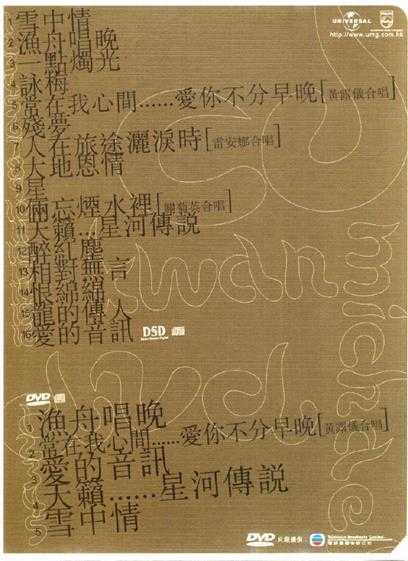 UNIVERSAL PHILIPS
http://www.umg.com.hk
1 雪中情
2 漁舟唱晚
3 一點燭光
4 詠梅
5 常在我心間......愛你不分早晚[黃露儀合唱]
6 殘夢
7 人在旅途灑淚時[雷安娜合唱]
8 大地恩情
9 星
10 倆忘煙水裡[關菊英合唱]
11 天籟...星河傳說
12 醉紅塵
13 相對無言
14 恨綿綿
15 龍的傳人
16 愛的音訊
DSD
DVD
1 漁舟唱晚
2 常在我心間......愛你不分早晚[黃露儀合唱]
3 愛的音訊
4 天籟......星河傳說
5 雪中情
DVD 片段提供:
Television Broadcasts Limited
電視廣播有限公司